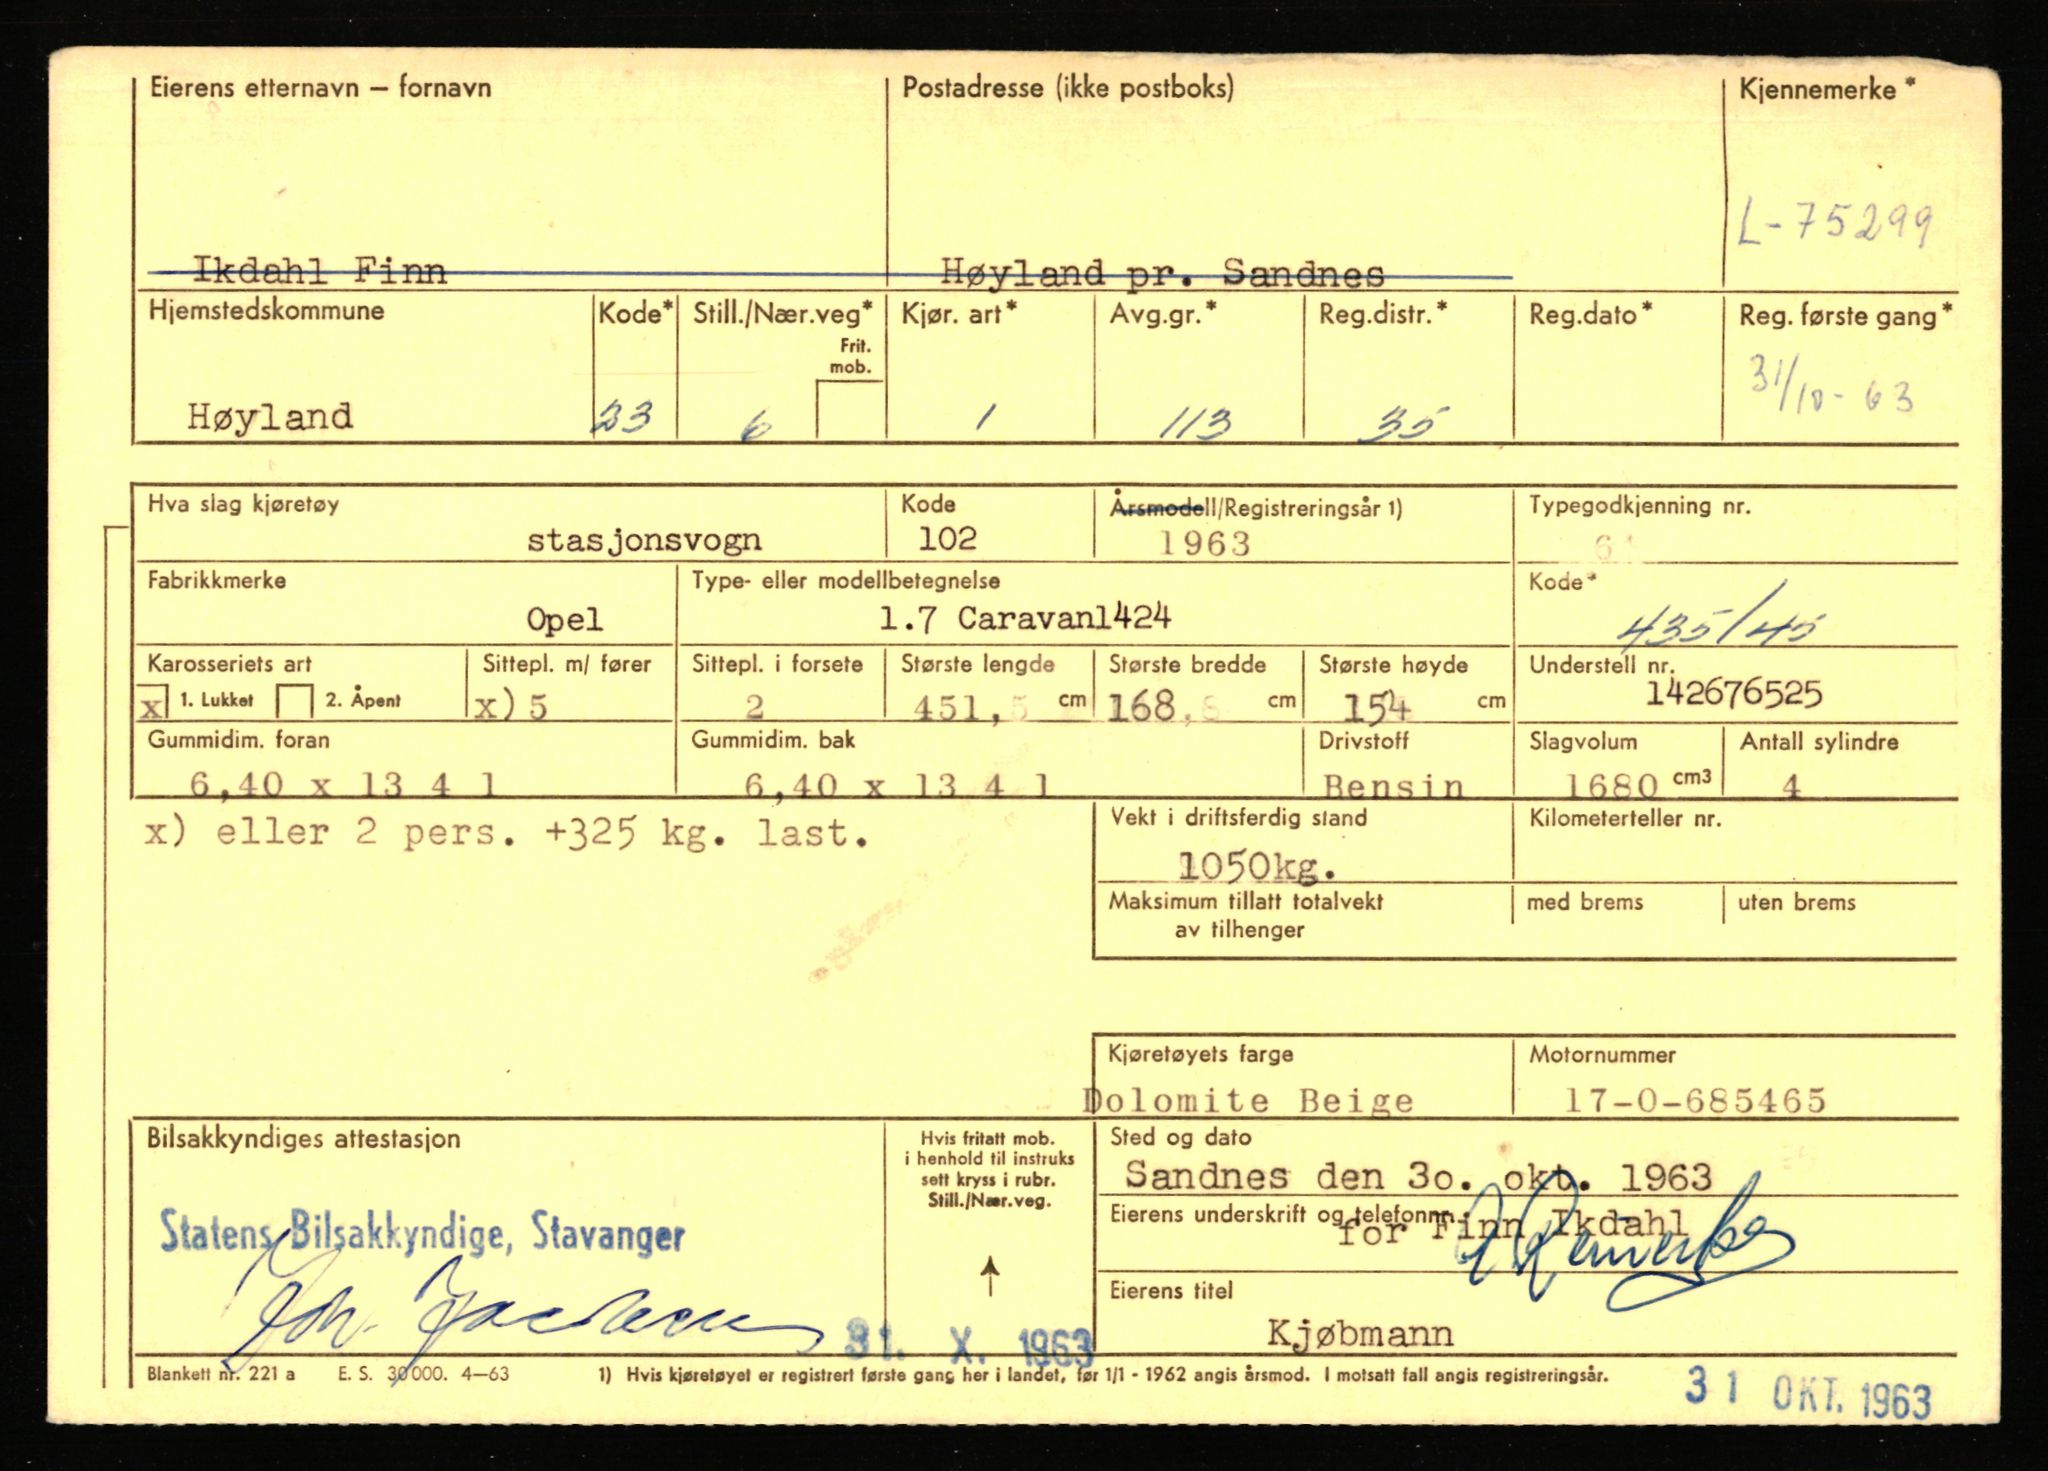 Eierens etternavn – fornavn Postadresse (ikke postboks) Kjennemerke *
L-75299
Ikdahl Finn Høyland pr. Sandnes
Hjemstedskommune Kode* Still./Nær.veg* Kjør. art* Avg.gr.* Reg.distr.* Reg.dato* Reg. første gang*
Frit.
mob.
31/10-63
Høyland 23 6 1 113 35
Hva slag kjøretøy Kode Årsmodell/Registreringsår 1) Typegodkjenning nr.
stasjonsvogn 102 1963
Fabrikkmerke Type- eller modellbetegnelse Kode*
Opel 1.7 Caravan1424 435/45
Karosseriets art Sittepl. m/ fører Sittepl. i forsete Største lengde Største bredde Største høyde Understell nr.
x 1. Lukket 2. Åpent x) 5 2 451,5 cm 168,8 cm 154 cm 142676525
Gummidim. foran Gummidim. bak Drivstoff Slagvolum Antall sylindre
6,40 x 13 4 l 6,40 x 13 4 l Bensin 1680 cm3 4
x) eller 2 pers. +325 kg. last.
Vekt i driftsferdig stand Kilometerteller nr.
1050kg.
Maksimum tillatt totalvekt med brems uten brems
av tilhenger
Kjøretøyets farge Motornummer
Dolomite Beige 17-0-685465
Bilsakkyndiges attestasjon Hvis fritatt mob.
i henhold til instruks
sett kryss i rubr.
Still./Nær.veg.
Sted og dato
Sandnes den 3o. okt. 1963
Statens Bilsakkyndige, Stavanger
Eierens underskrift og telefonnr.
for Finn Ikdahl
Eierens titel
Kjøbmann
31. X. 1963
Blankett nr. 221 a E. S. 30000. 4–63 1) Hvis kjøretøyet er registrert første gang her i landet, før 1/1 - 1962 angis årsmod. I motsatt fall angis registreringsår.
31 OKT. 1963